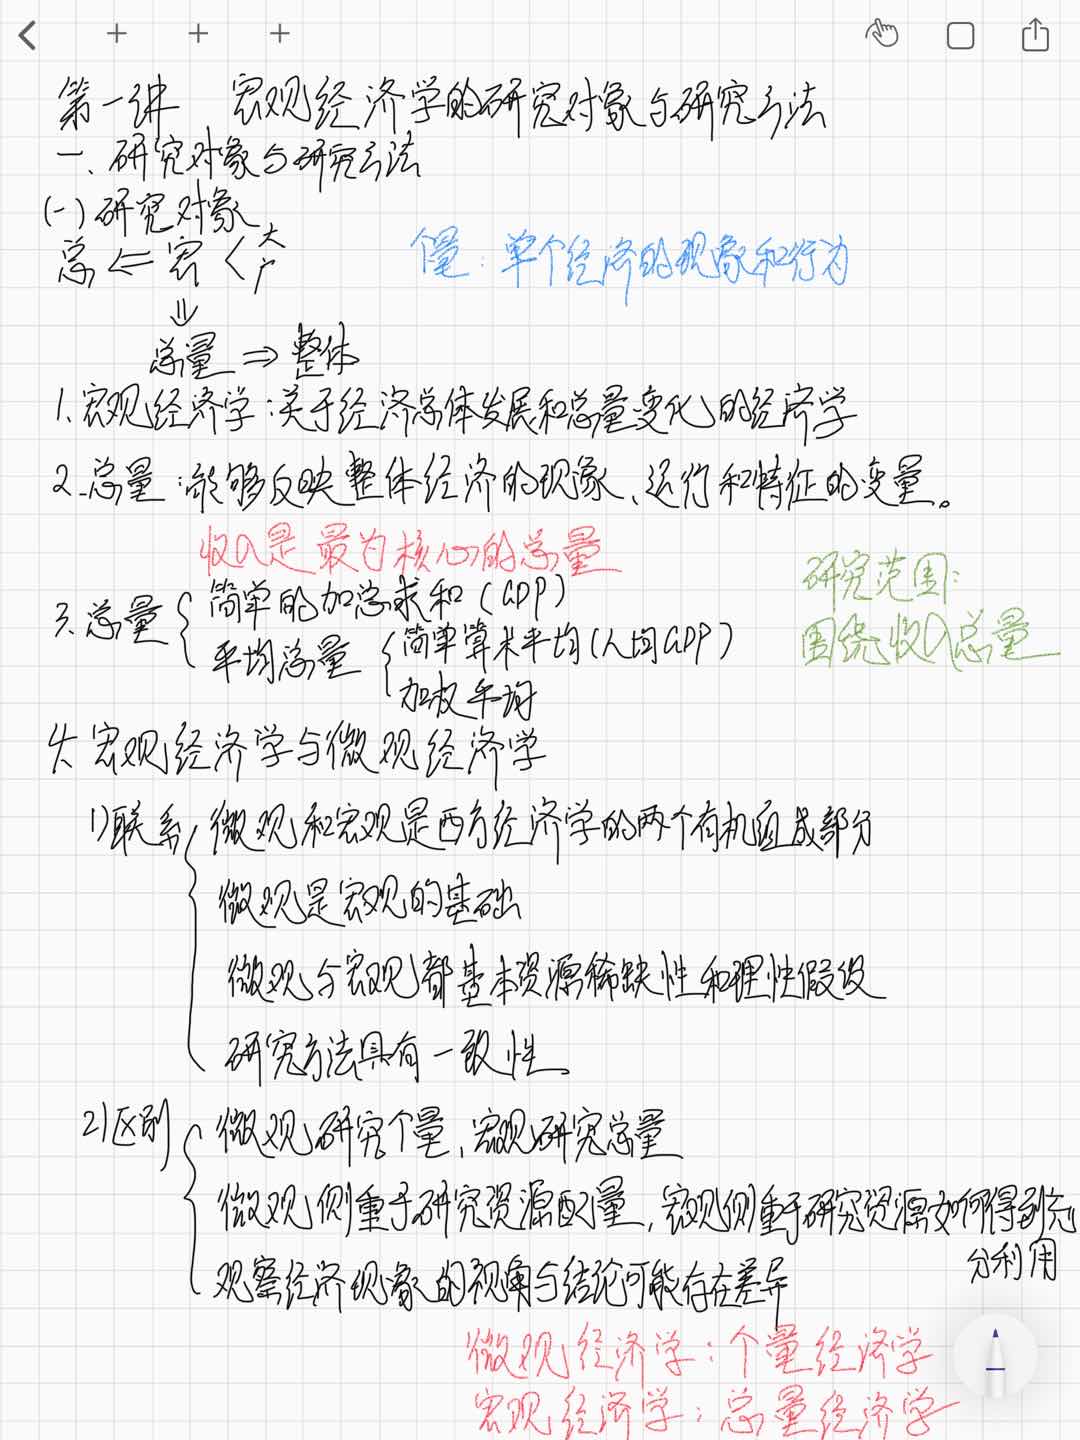 第一讲 宏观经济学的研究对象与研究方法
一、研究对象与研究方法
(一)研究对象
总 ⇐ 宏 〈 大 广
个量：单个经济的现象和行为
⇓
总量 ⇒ 整体
1.宏观经济学：关于经济总体发展和总量变化的经济学
2.总量：能够反映整体经济的现象、运行和特征的变量。
收入是最为核心的总量
研究范围：
围绕收入总量
3.总量 { 简单的加总求和（GDP）
平均总量 { 简单算术平均（人均GDP）
加权平均
4.宏观经济学与微观经济学
1)联系 { 微观和宏观是西方经济学的两个有机组成部分
微观是宏观的基础
微观与宏观都基本资源稀缺性和理性假设
研究方法具有一致性。
2)区别 { 微观研究个量、宏观研究总量
微观侧重于研究资源配量，宏观侧重于研究资源如何得到充
分利用
观察经济现象的视角与结论可能存在差异
微观经济学：个量经济学
宏观经济学：总量经济学